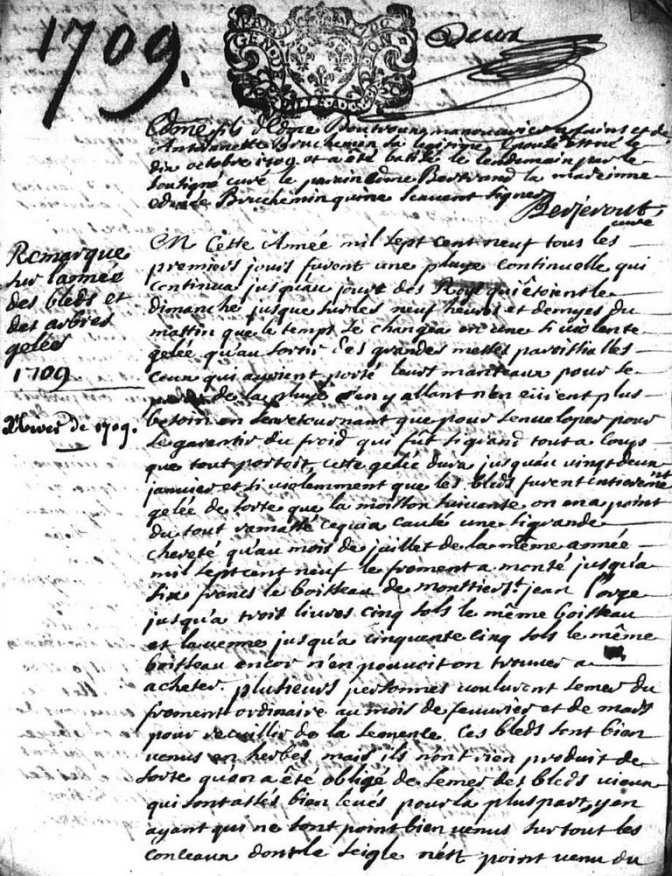 1709.
Deux
GEN DE
Edme fils d'Edme manouvrier et de
Antoinette Bruchemin sa legitime Epouse est né le
dix octobre 1709. et a été batisé le lendemain par le
sousigné curé le parain Edme Bertrand la marainne
Edmée Bruchemin qui ne scavent signer
curé
Remarque
sur l'année
des bleds et
des arbres
gelées
1709
Hiver de 1709.
En Cette Année mil sept cent neuf tous les
premiers jours furent une pluye continuelle qui
continua jusqu'au jour des Roys qui étoient le
dimanche jusque sur les neuf heures et demyes du
mattin que le temps se changea en une si violente
gelée qu'au sortir des grandes messes paroissialles
ceux qui avoient porté leurs manteaux pour se
de la pluye s'en y allant n'en eurent plus
besoin en s'en retournant que pour s'enveloper pour
se garentir du froid qui fut si grand tout a coup
que tout portoit, cette gelée dura jusqu'au vingt deux
janvier et si violemment que les bleds furent entierement
gelée de sorte que la moisson suivante on en a point
du tout ramassé ce qui a causé une si grande
chereté qu'au mois de juillet de la même année
mil sept cent neuf le froment a monté jusqu'a
six francs le boisseau de monstier st. jean l'orge
jusqu'a trois livres cinq sols le même boisseau
et l'avenne jusqu'a cinquante cinq sols le même
boisseau encor n'en pouvoit on trouver a
acheter. plusieurs personnes voulurent semer du
froment ordinaire au mois de fevrier et de mars
pour recuillir de la semence. Ces bleds sont bien
venus en herbes mais ils n'ont rien produit de
sorte qu'on a été obligé de semer des bleds vieux
qui sont assés bien levés pour la pluspart, y en
ayant qui ne sont point bien venus sur tout les
conceaux dont le seigle n'est point venu du